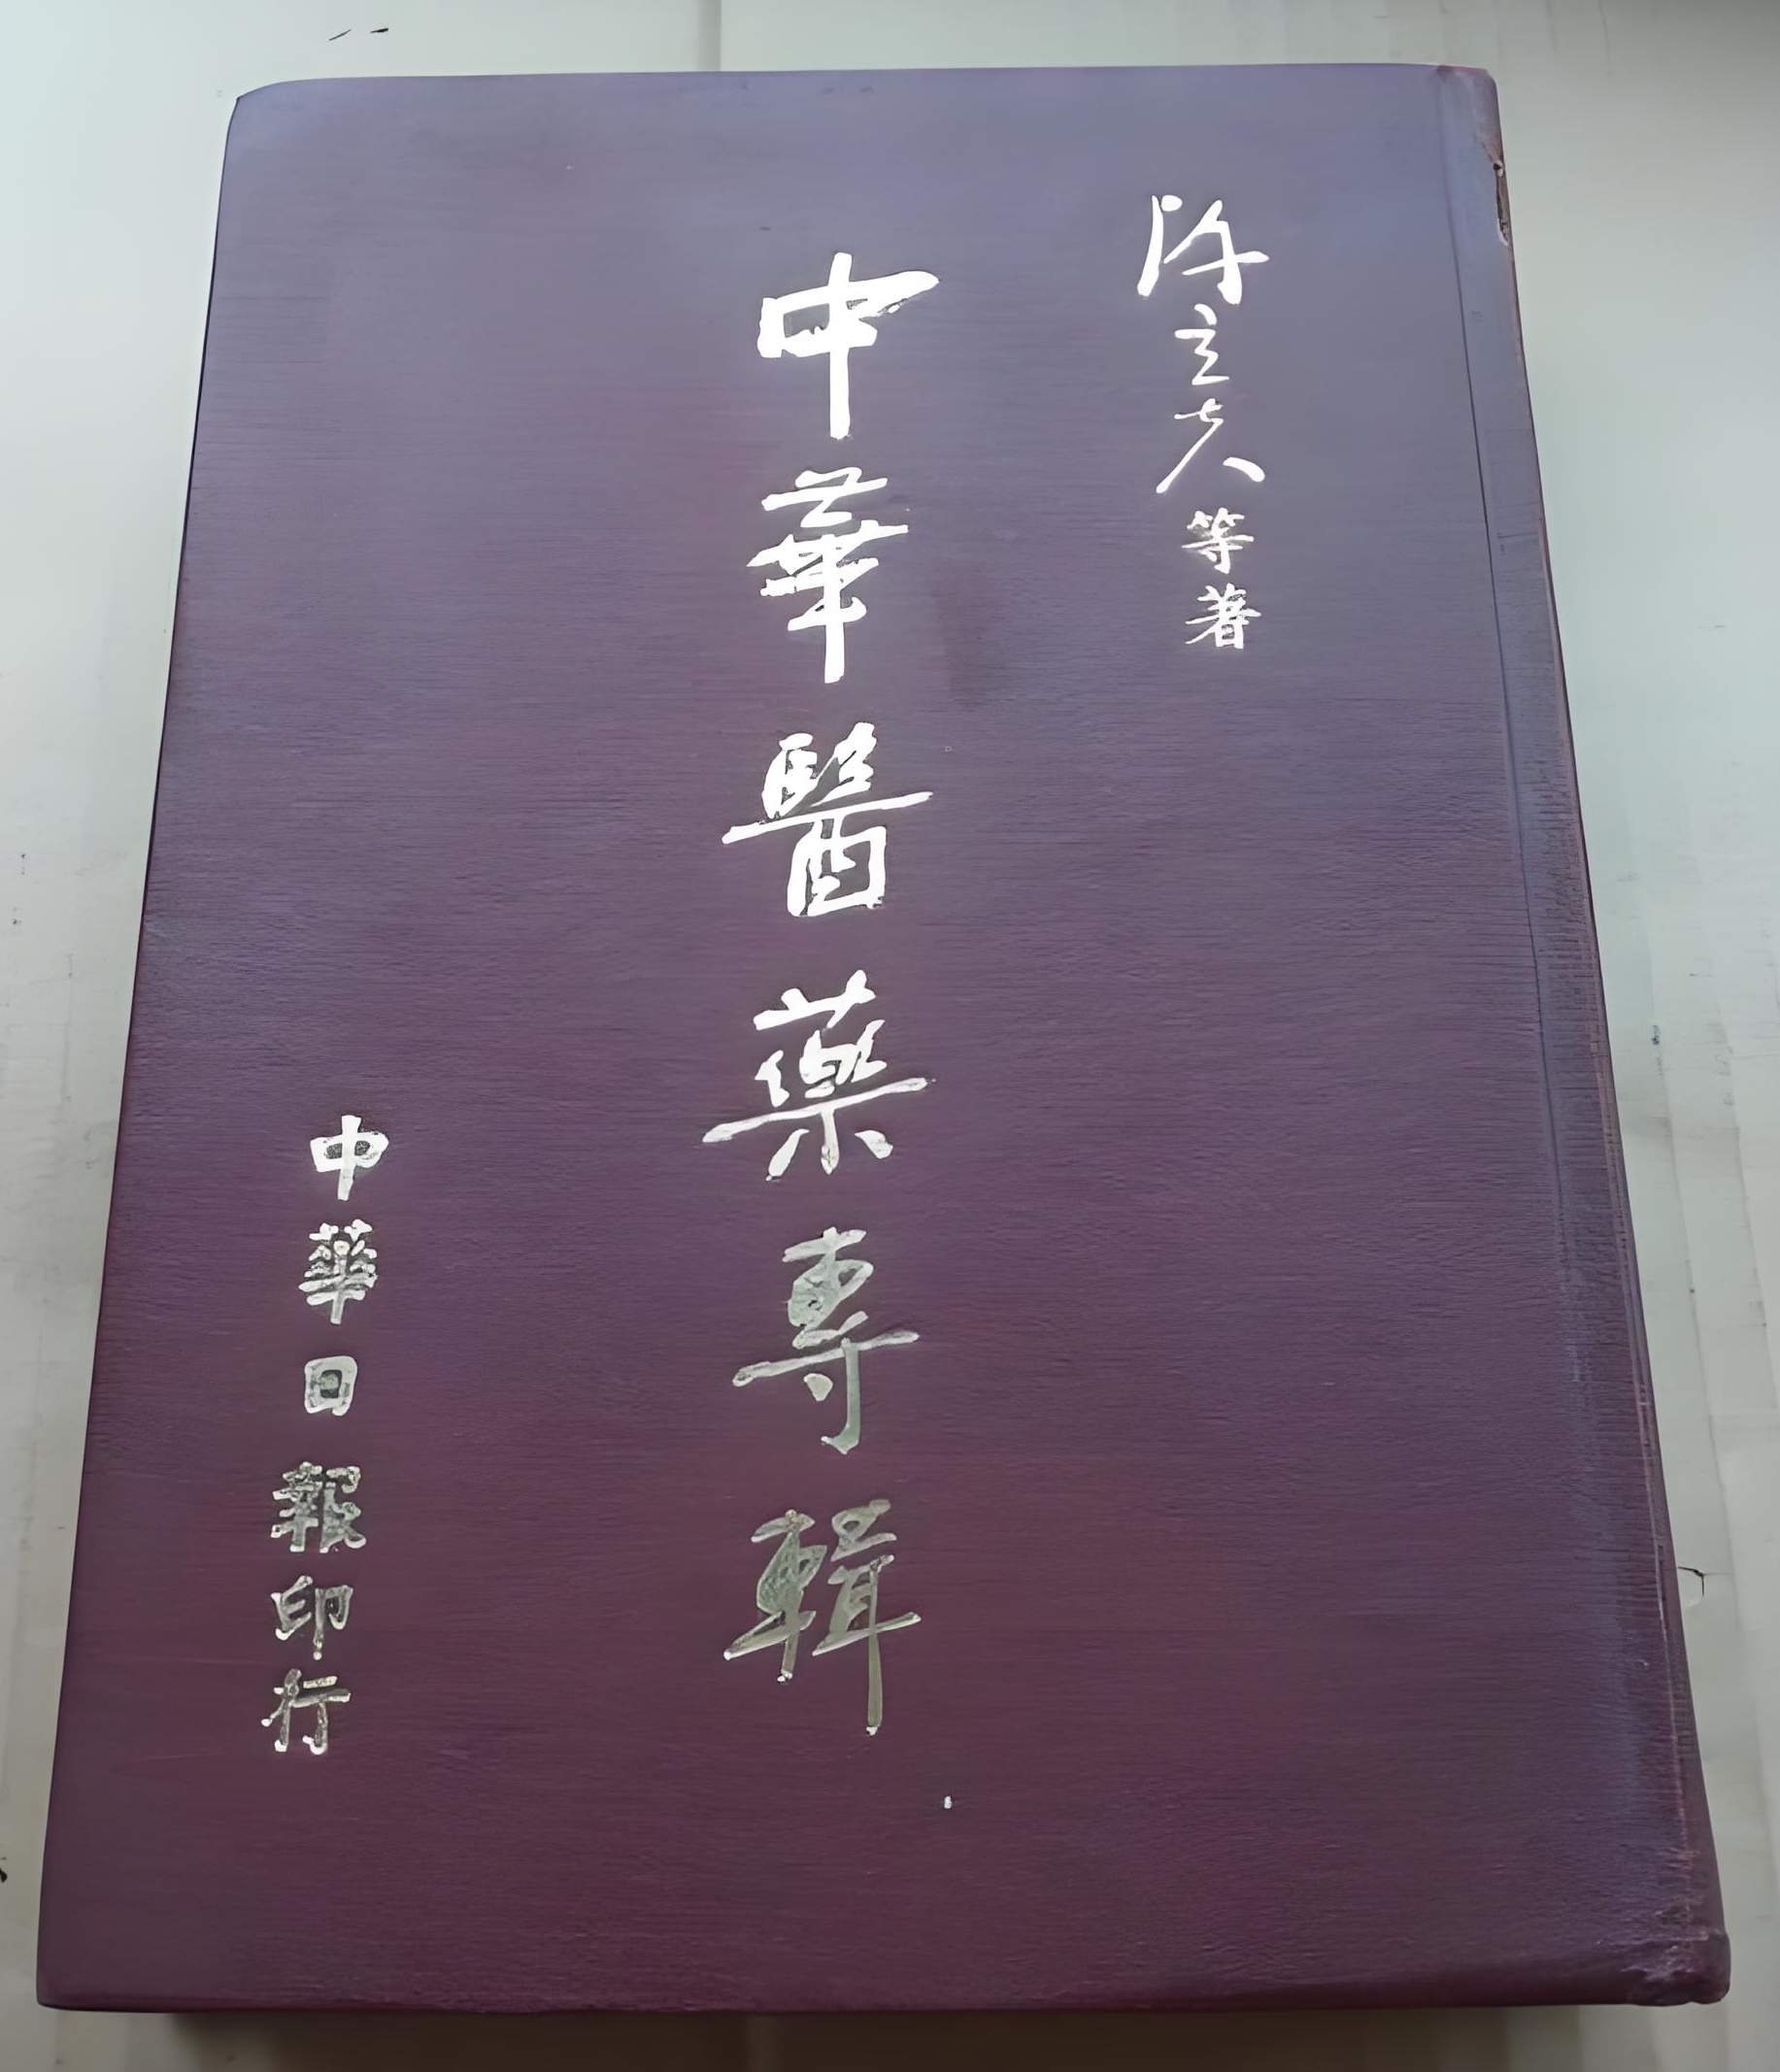 陳立夫等著
中華醫藥專輯
中華日報印行